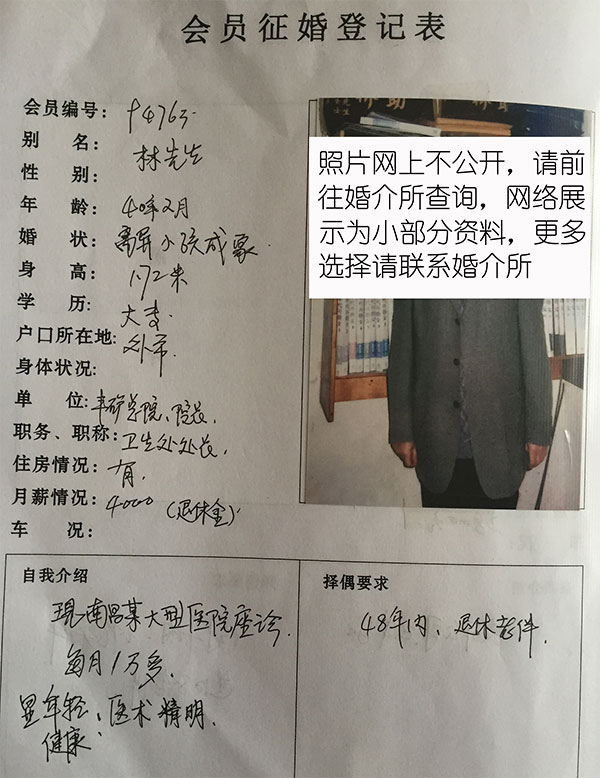 会员征婚登记表
会员编号:
别 名: 林先生
性 别:
年 龄: 40年2月
婚 状: 离异小孩成家.
身 高: 1.72米
学 历: 大专.
户口所在地: 外市.
身体状况:
单 位: 学院、院长,
职务、职称: 卫生处处长,
住房情况: 有.
月薪情况: 4000 (退休金)
车 况:
照片网上不公开，请前
往婚介所查询，网络展
示为小部分资料，更多
选择请联系婚介所
自我介绍
现南昌某大型医院座诊.
每月1万多.
显年轻、医术精明.
健康.
择偶要求
48年内、退休老伴.